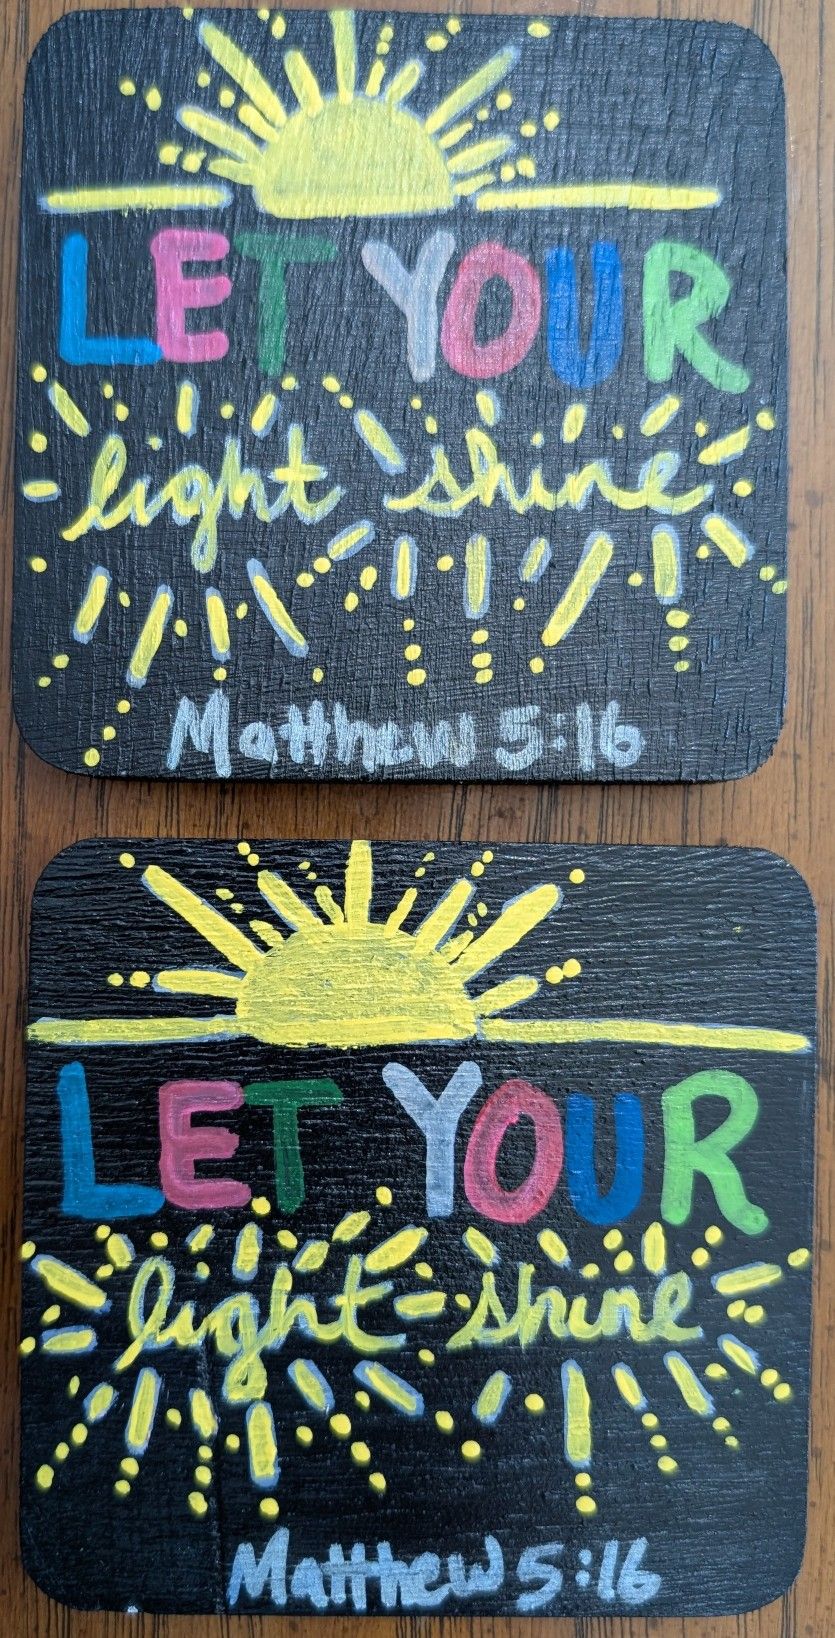 LET YOUR
light shine
Matthew 5:16
LET YOUR
light shine
Matthew 5:16